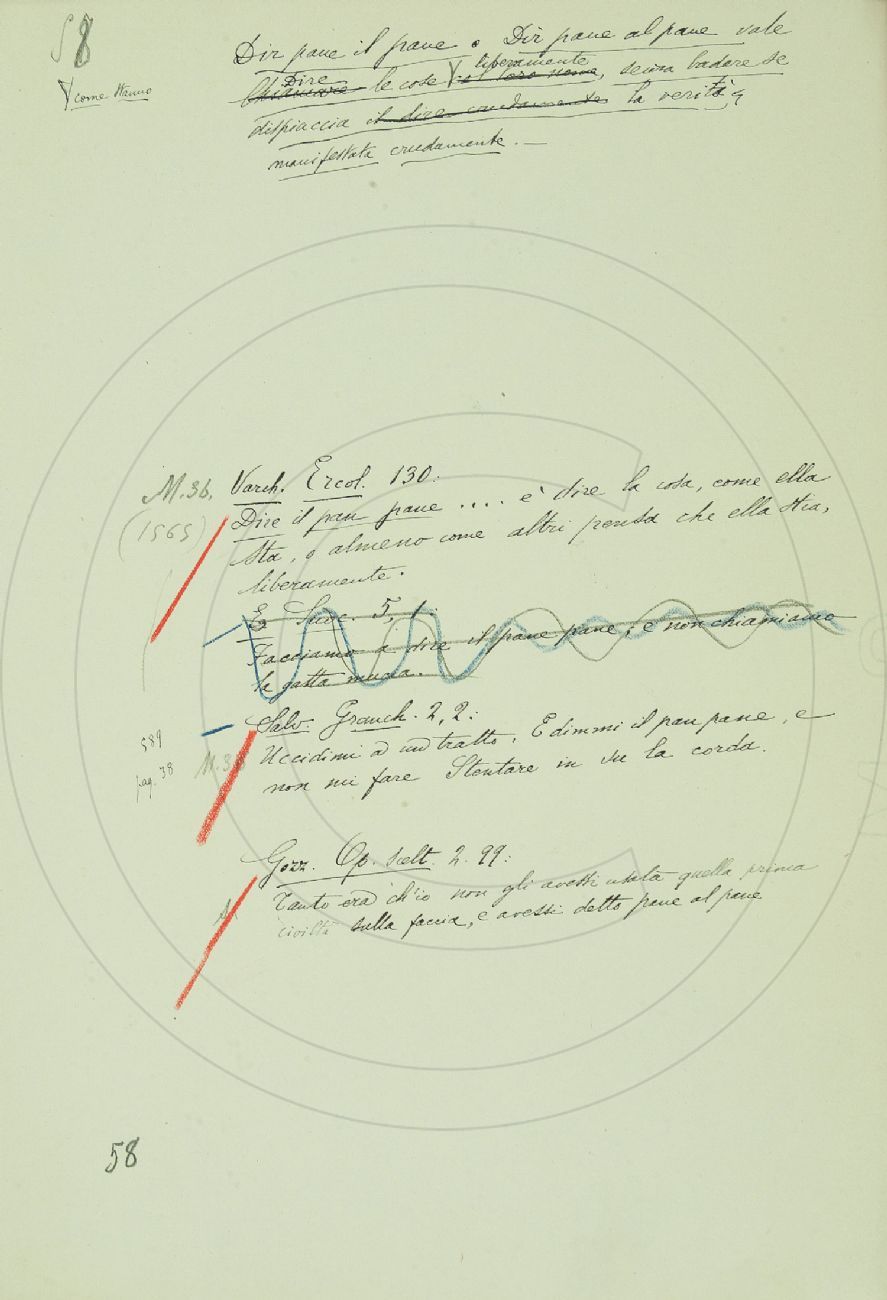 § 8
Dir pane il pane o Dir pane al pane vale
Chiamare Dire le cose col loro nome liberamente, senza badare se
come stanno
dispiaccia il dire crudamente la verità,
manifestata crudamente. —
M. 36. Varch. Ercol. 130:
(1565) Dire il pan pane .... è dire la cosa, come ella
sta, o almeno come altri pensa che ella stia,
liberamente.
E Suoc. 5, 1:
Facciamo a dire il pane pane; e non chiamiamo
la gatta mucia.
Salv. Granch. 2, 2:
589
Uccidimi a un tratto. E dimmi il pan pane, e
pag. 38 M. 38
non mi fare stentare in su la corda.
Gozz. Op. scelt. 2. 99:
Tanto era ch'io non gli avessi usata quella prima
civiltà sulla faccia, e avessi detto pane al pane
58